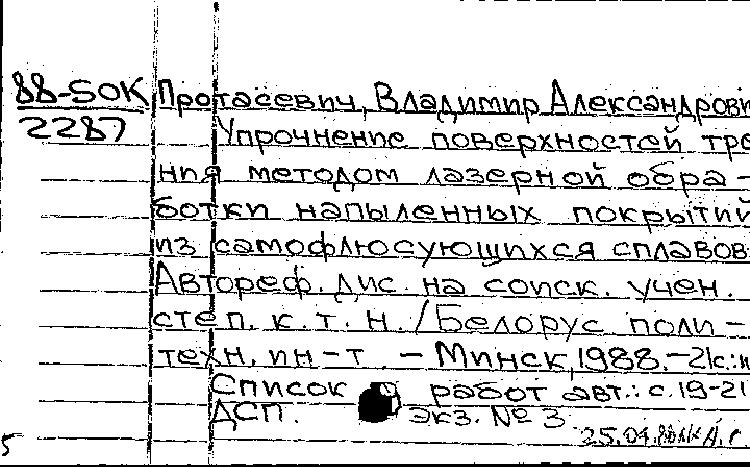 88-50К Протасевич, Владимир Александрови
2287 Упрочнение поверхностей тре
ния методом лазерной обра-
ботки напыленных покрытий
из самофлюсующихся сплавов.
Автореф. дис. на соиск. учен.
степ. к.т.н./Белорус. поли-
техн. ин-т. - Минск, 1988.-21с.:и
Список работ авт.: с.19-21
ДСП. Экз. № 3
5